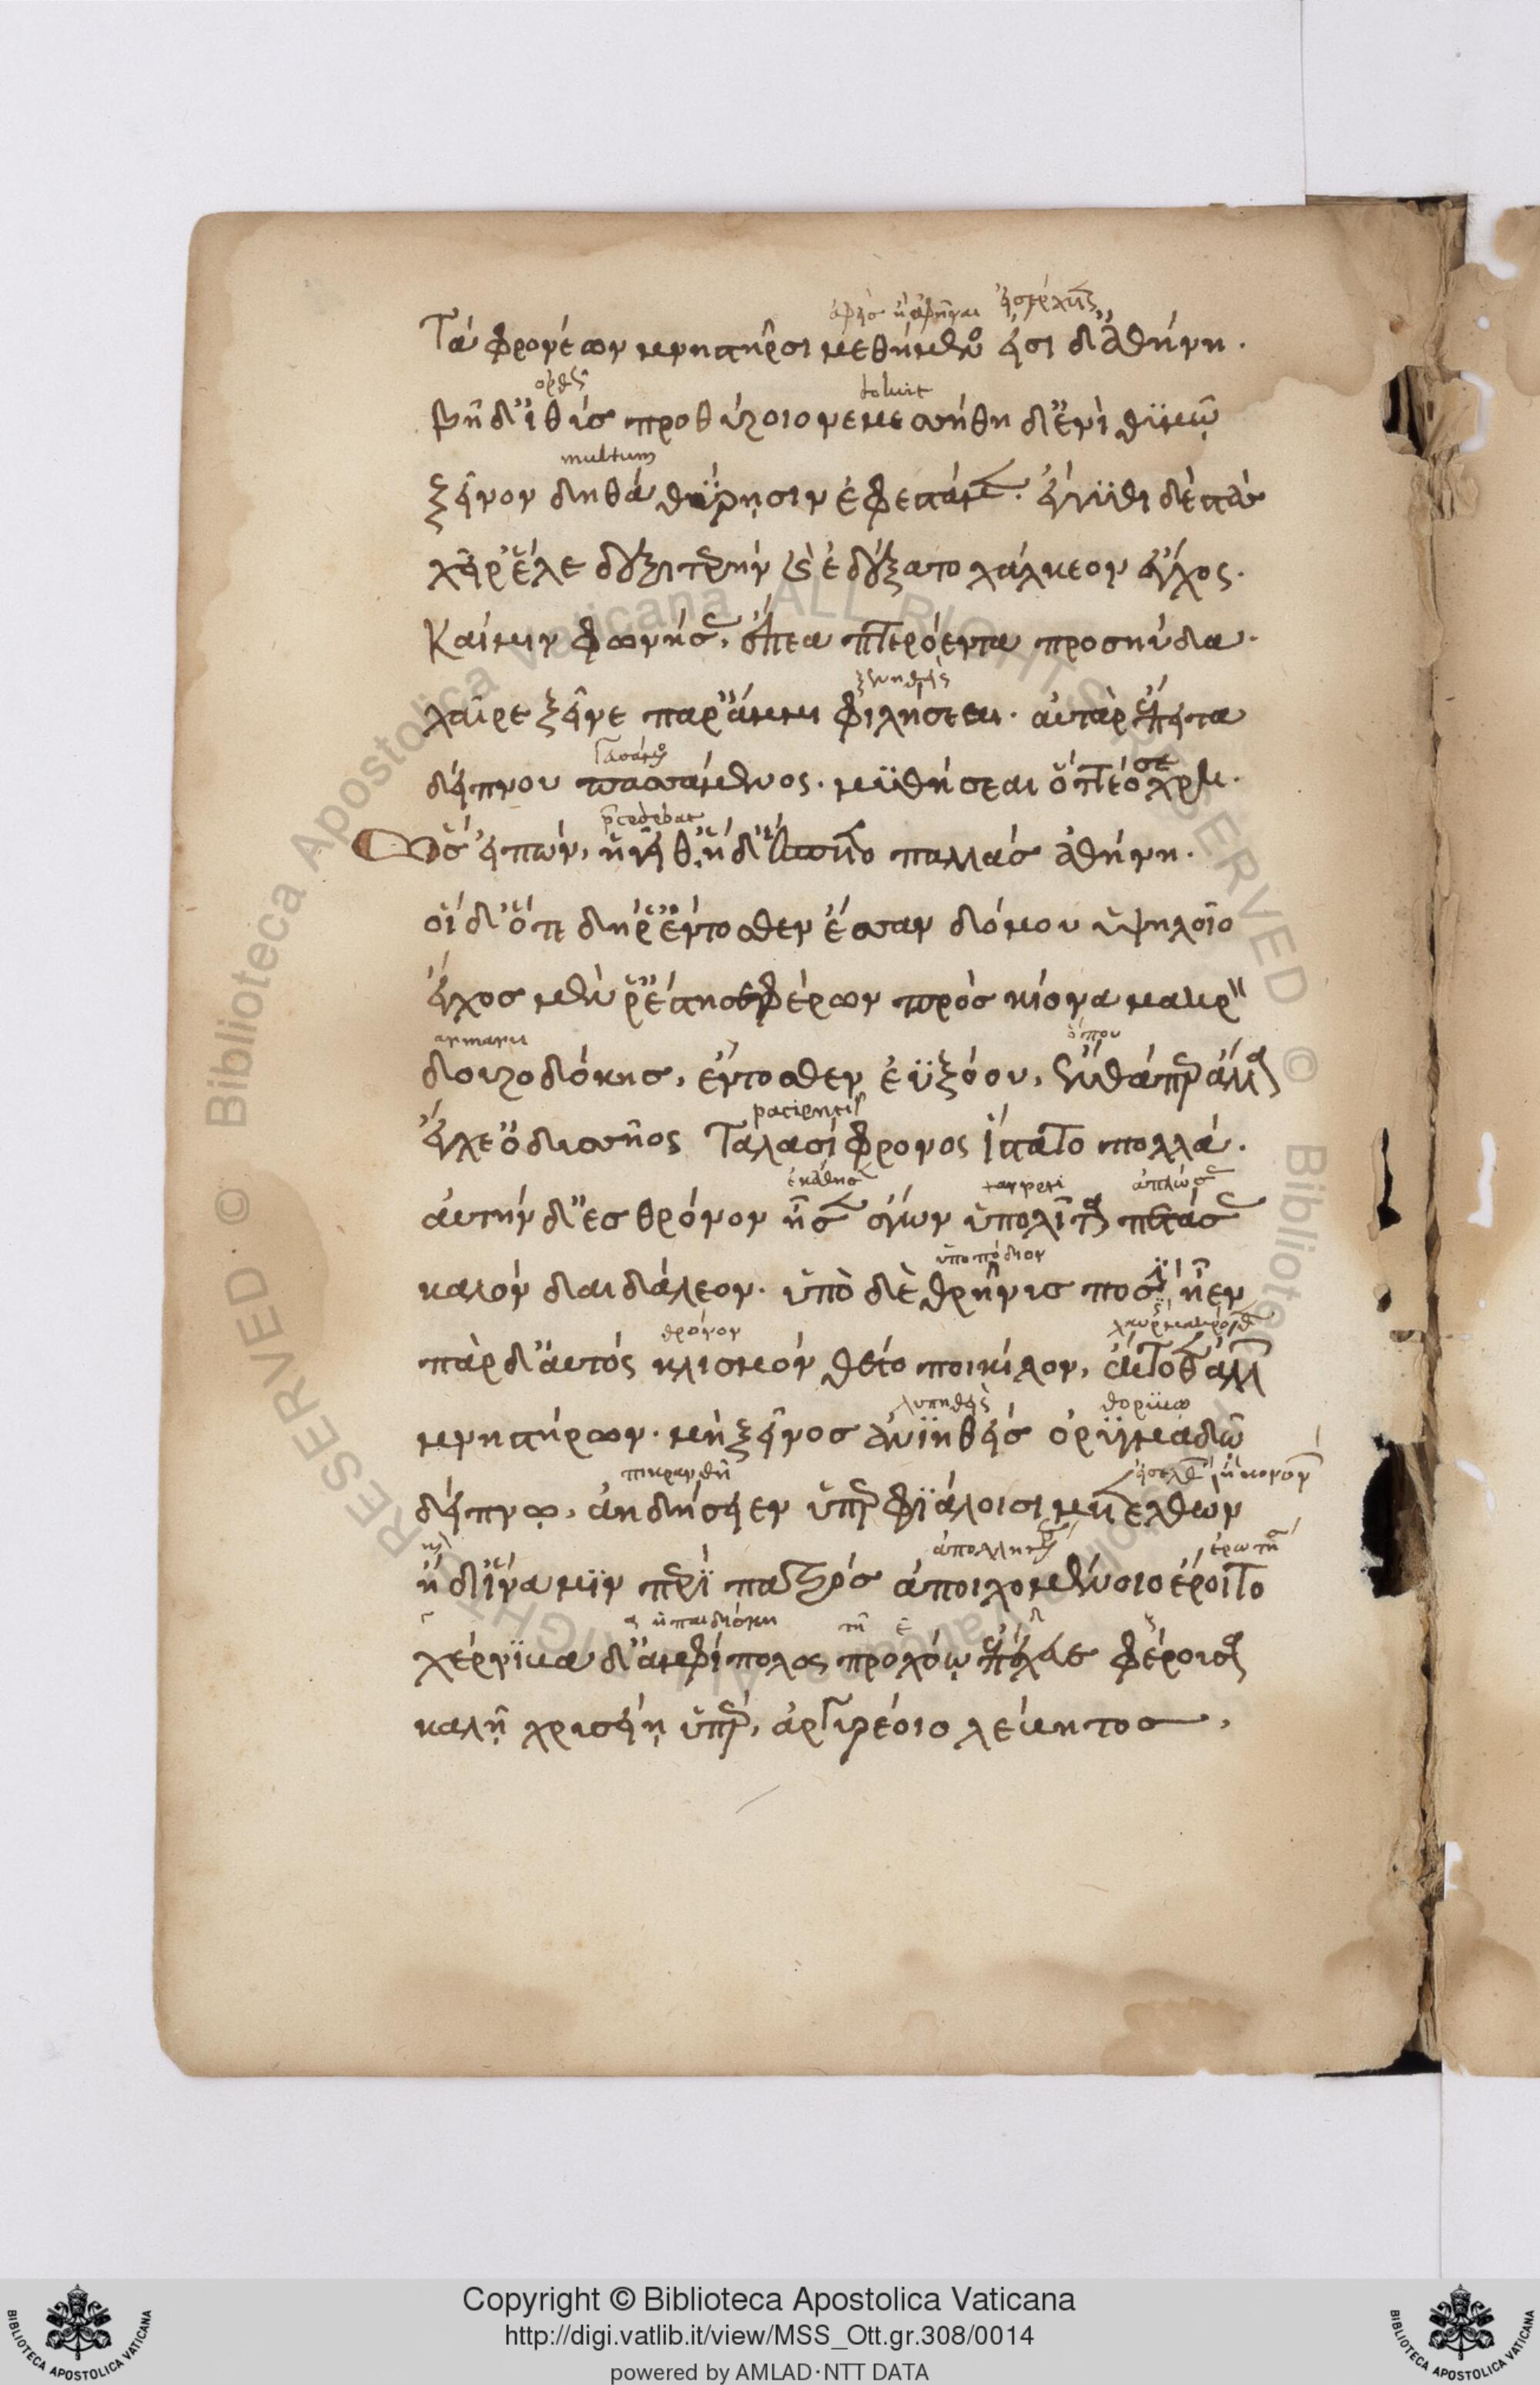 Τά φρονέων μνηστῆρσι μεθήμενος εἴσιδ' ἀθήνη.
βῆ δ' ἰθὺς προθύροιο νεμεσσήθη δ' ἐνὶ θυμῷ
multum
ξεῖνον δηθά θύρησιν ἐφεστάμεν. ἐγγύθι δὲ στὰς
χεῖρ' ἕλε δεξιτερὴν καὶ ἐδέξατο χάλκεον ἔγχος.
Καί μιν φωνήσας, ἔπεα πτερόεντα προσηύδα.
χαῖρε ξεῖνε παρ' ἄμμι φιλήσεαι. αὐτὰρ ἔπειτα
δείπνου πασσάμενος. μυθήσεαι ὅττεό σε χρή.
Ὣς εἰπών, ἡγεῖθ' ἡ δ' ἕσπετο παλλάς ἀθήνη.
οἱ δ' ὅτε δή ῥ' ἔντοσθεν ἔσαν δόμου ὑψηλοῖο
ἔγχος μέν ῥ' ἔστησε φέρων πρὸς κίονα μακρὴν
δουροδόκης, ἔντοσθεν ἐϋξόου, ἔνθά περ ἄλλα
patientis
ἔγχε' ὀδυσσῆος Ταλασίφρονος ἵστατο πολλά.
αὐτήν δ' ἐς θρόνον εἷσεν ἄγων ὑπολῖτα πετάσας
ὑποπόδιον
καλόν δαιδάλεον. ὑπὸ δὲ θρῆνυς ποσίν ἦεν
θρόνον
πὰρ δ' αὐτός κλισμόν θέτο ποικίλον, ἔκτοθεν ἄλλων
μνηστήρων. μὴ ξεῖνος ἀνιηθείς ὀρυμαγδῷ
πικρανθῆ
δείπνῳ, ἀηδήσειεν ὑπερφιάλοισι μετελθών
ἠδ' ἵνα μιν περὶ πατρός ἀποιχομένοιο ἔροιτο
χέρνιβα δ' ἀμφίπολος προχόῳ ἐπέχευε φέρουσα
καλῇ χρυσείῃ ὑπέρ, ἀργυρέοιο λέβητος,
Copyright © Biblioteca Apostolica Vaticana
http://digi.vatlib.it/view/MSS_Ott.gr.308/0014
powered by AMLAD·NTT DATA